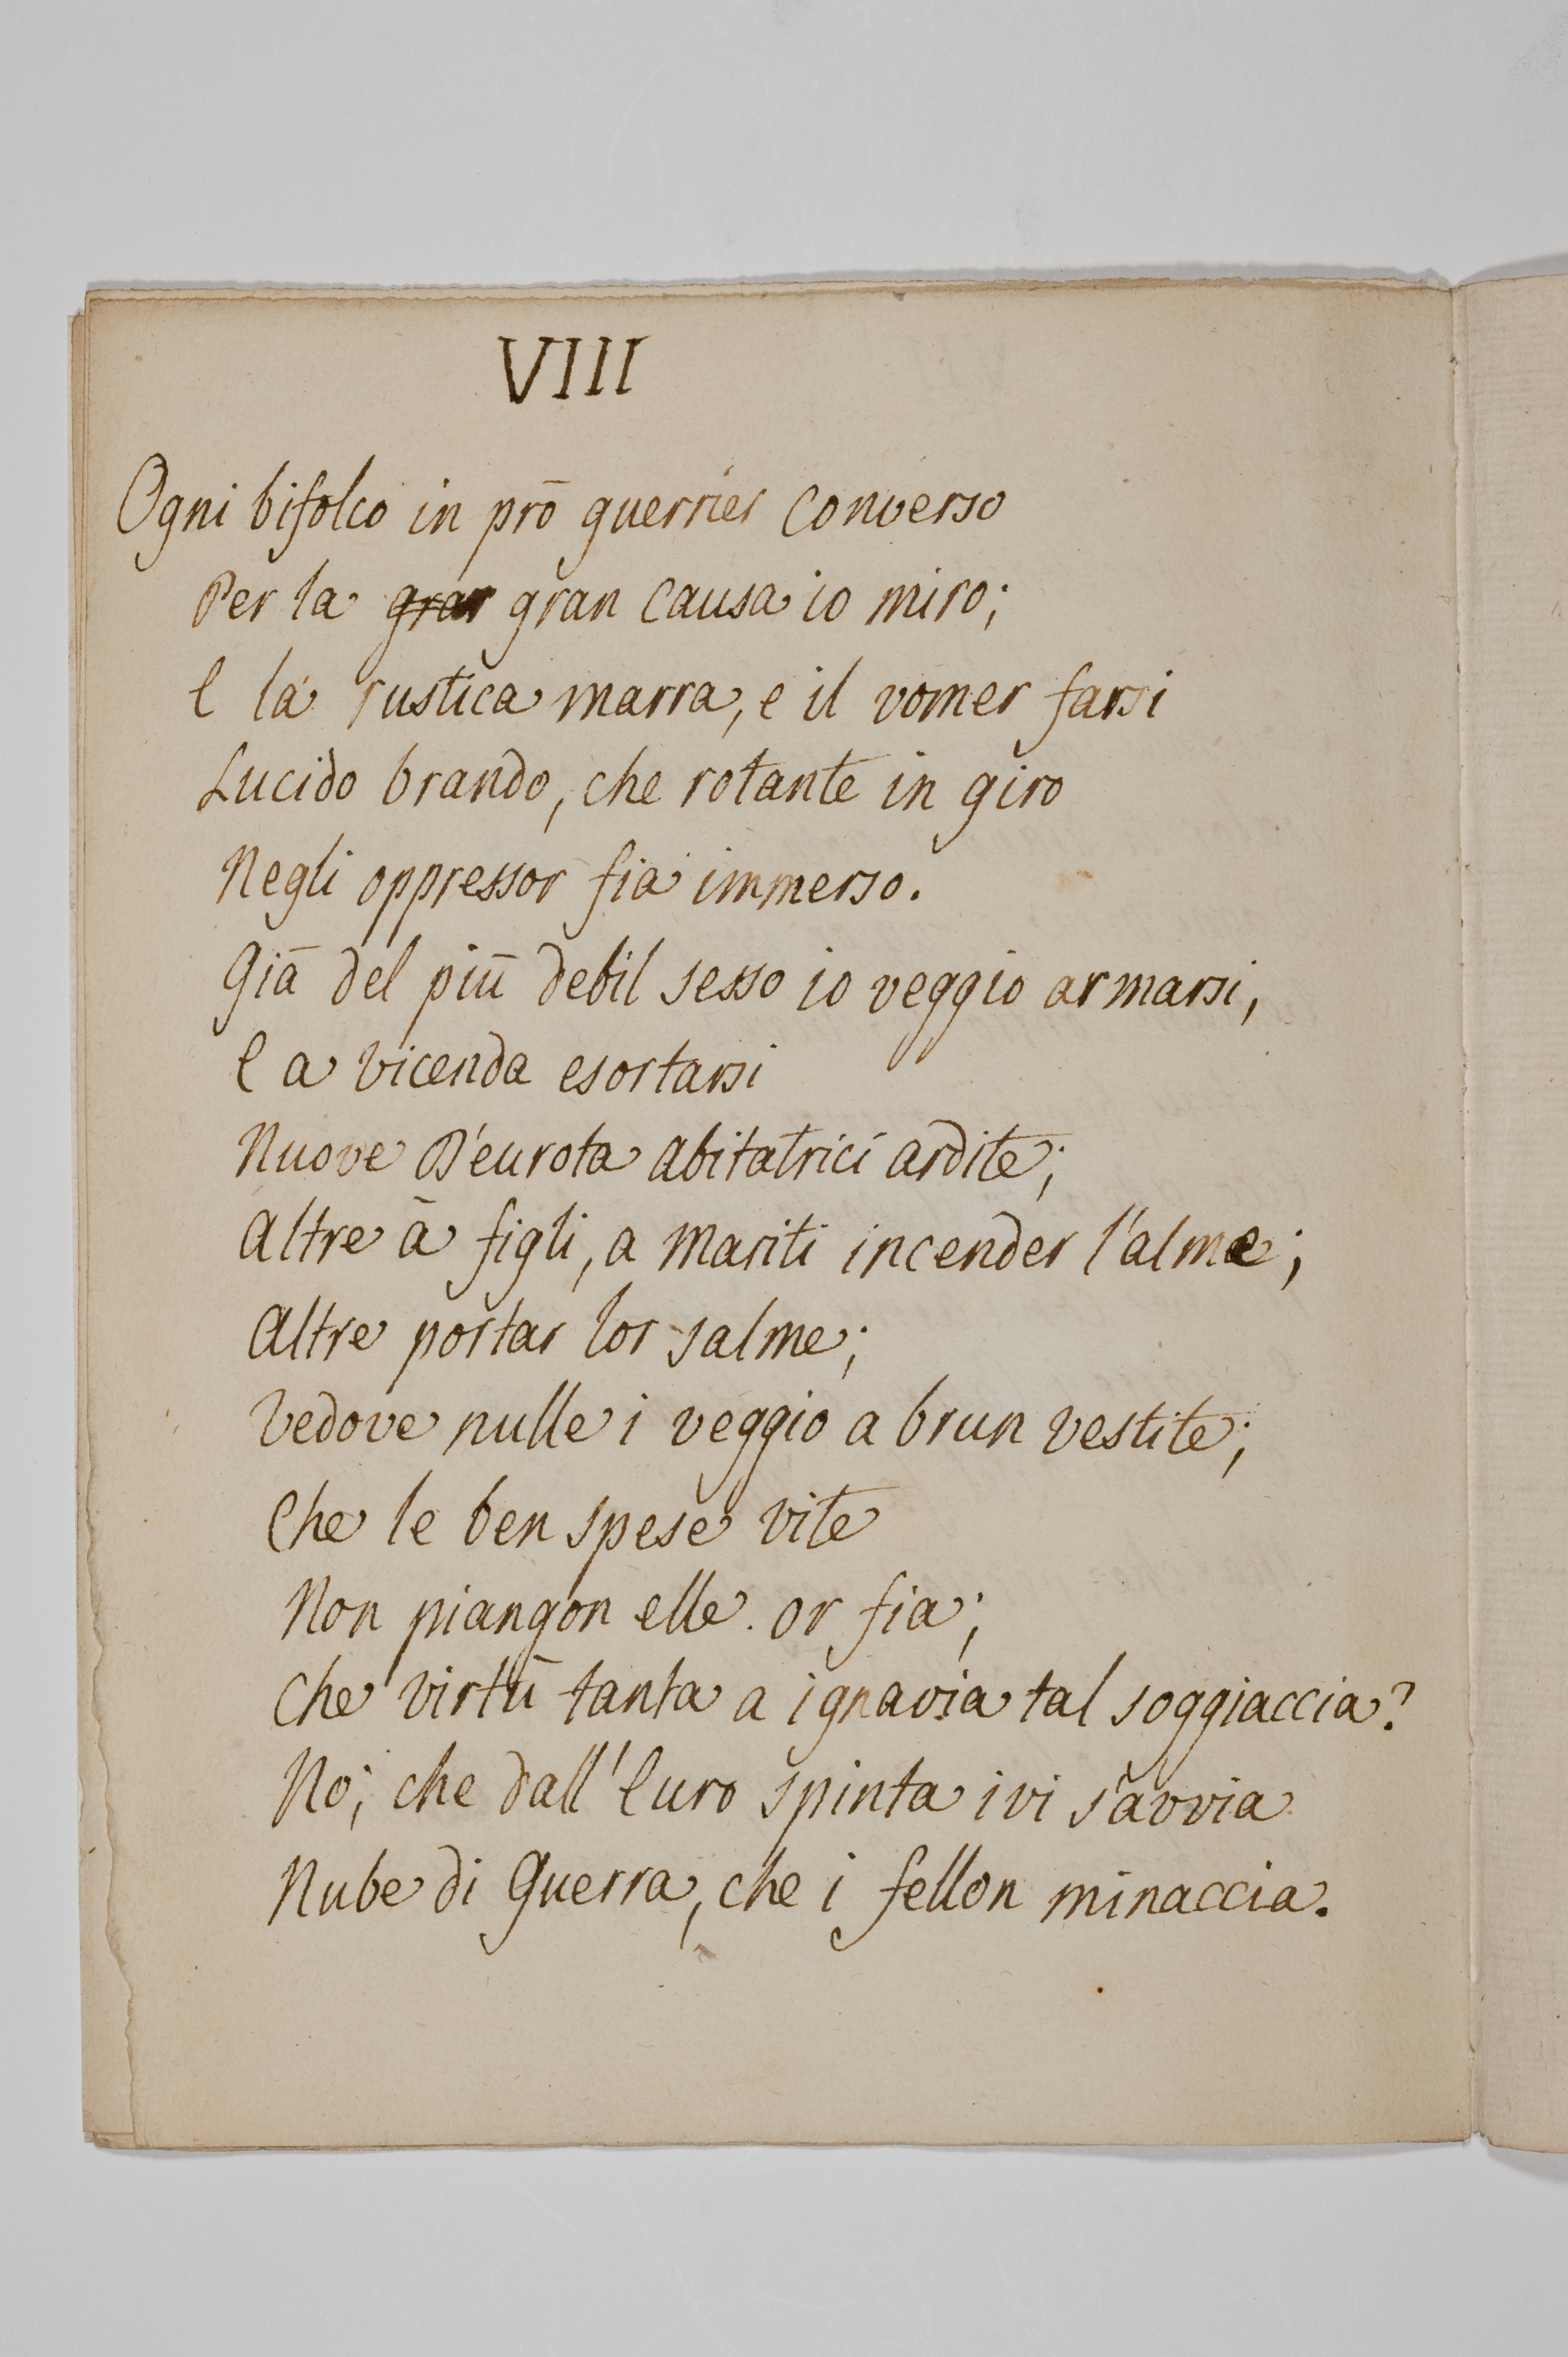 VIII
Ogni bifolco in prō guerrier converso
Per la grar gran causa io miro;
E la rustica marra, e il vomer farsi
Lucido brando, che rotante in giro
Negli oppressor fia immerso.
Giā del piū debil sesso io veggio armarsi,
E a vicenda esortarsi
Nuove D'eurota abitatrici ardite;
Altre ā figli, a mariti incender l'alme;
Altre portar lor salme;
Vedove nulle i veggio a brun vestite;
Che le ben spese vite
Non piangon elle. or fia;
Che virtū tanta a ignavia tal soggiaccia?
No; che dall'Euro spinta ivi s'avvia
Nube di Guerra, che i fellon minaccia.